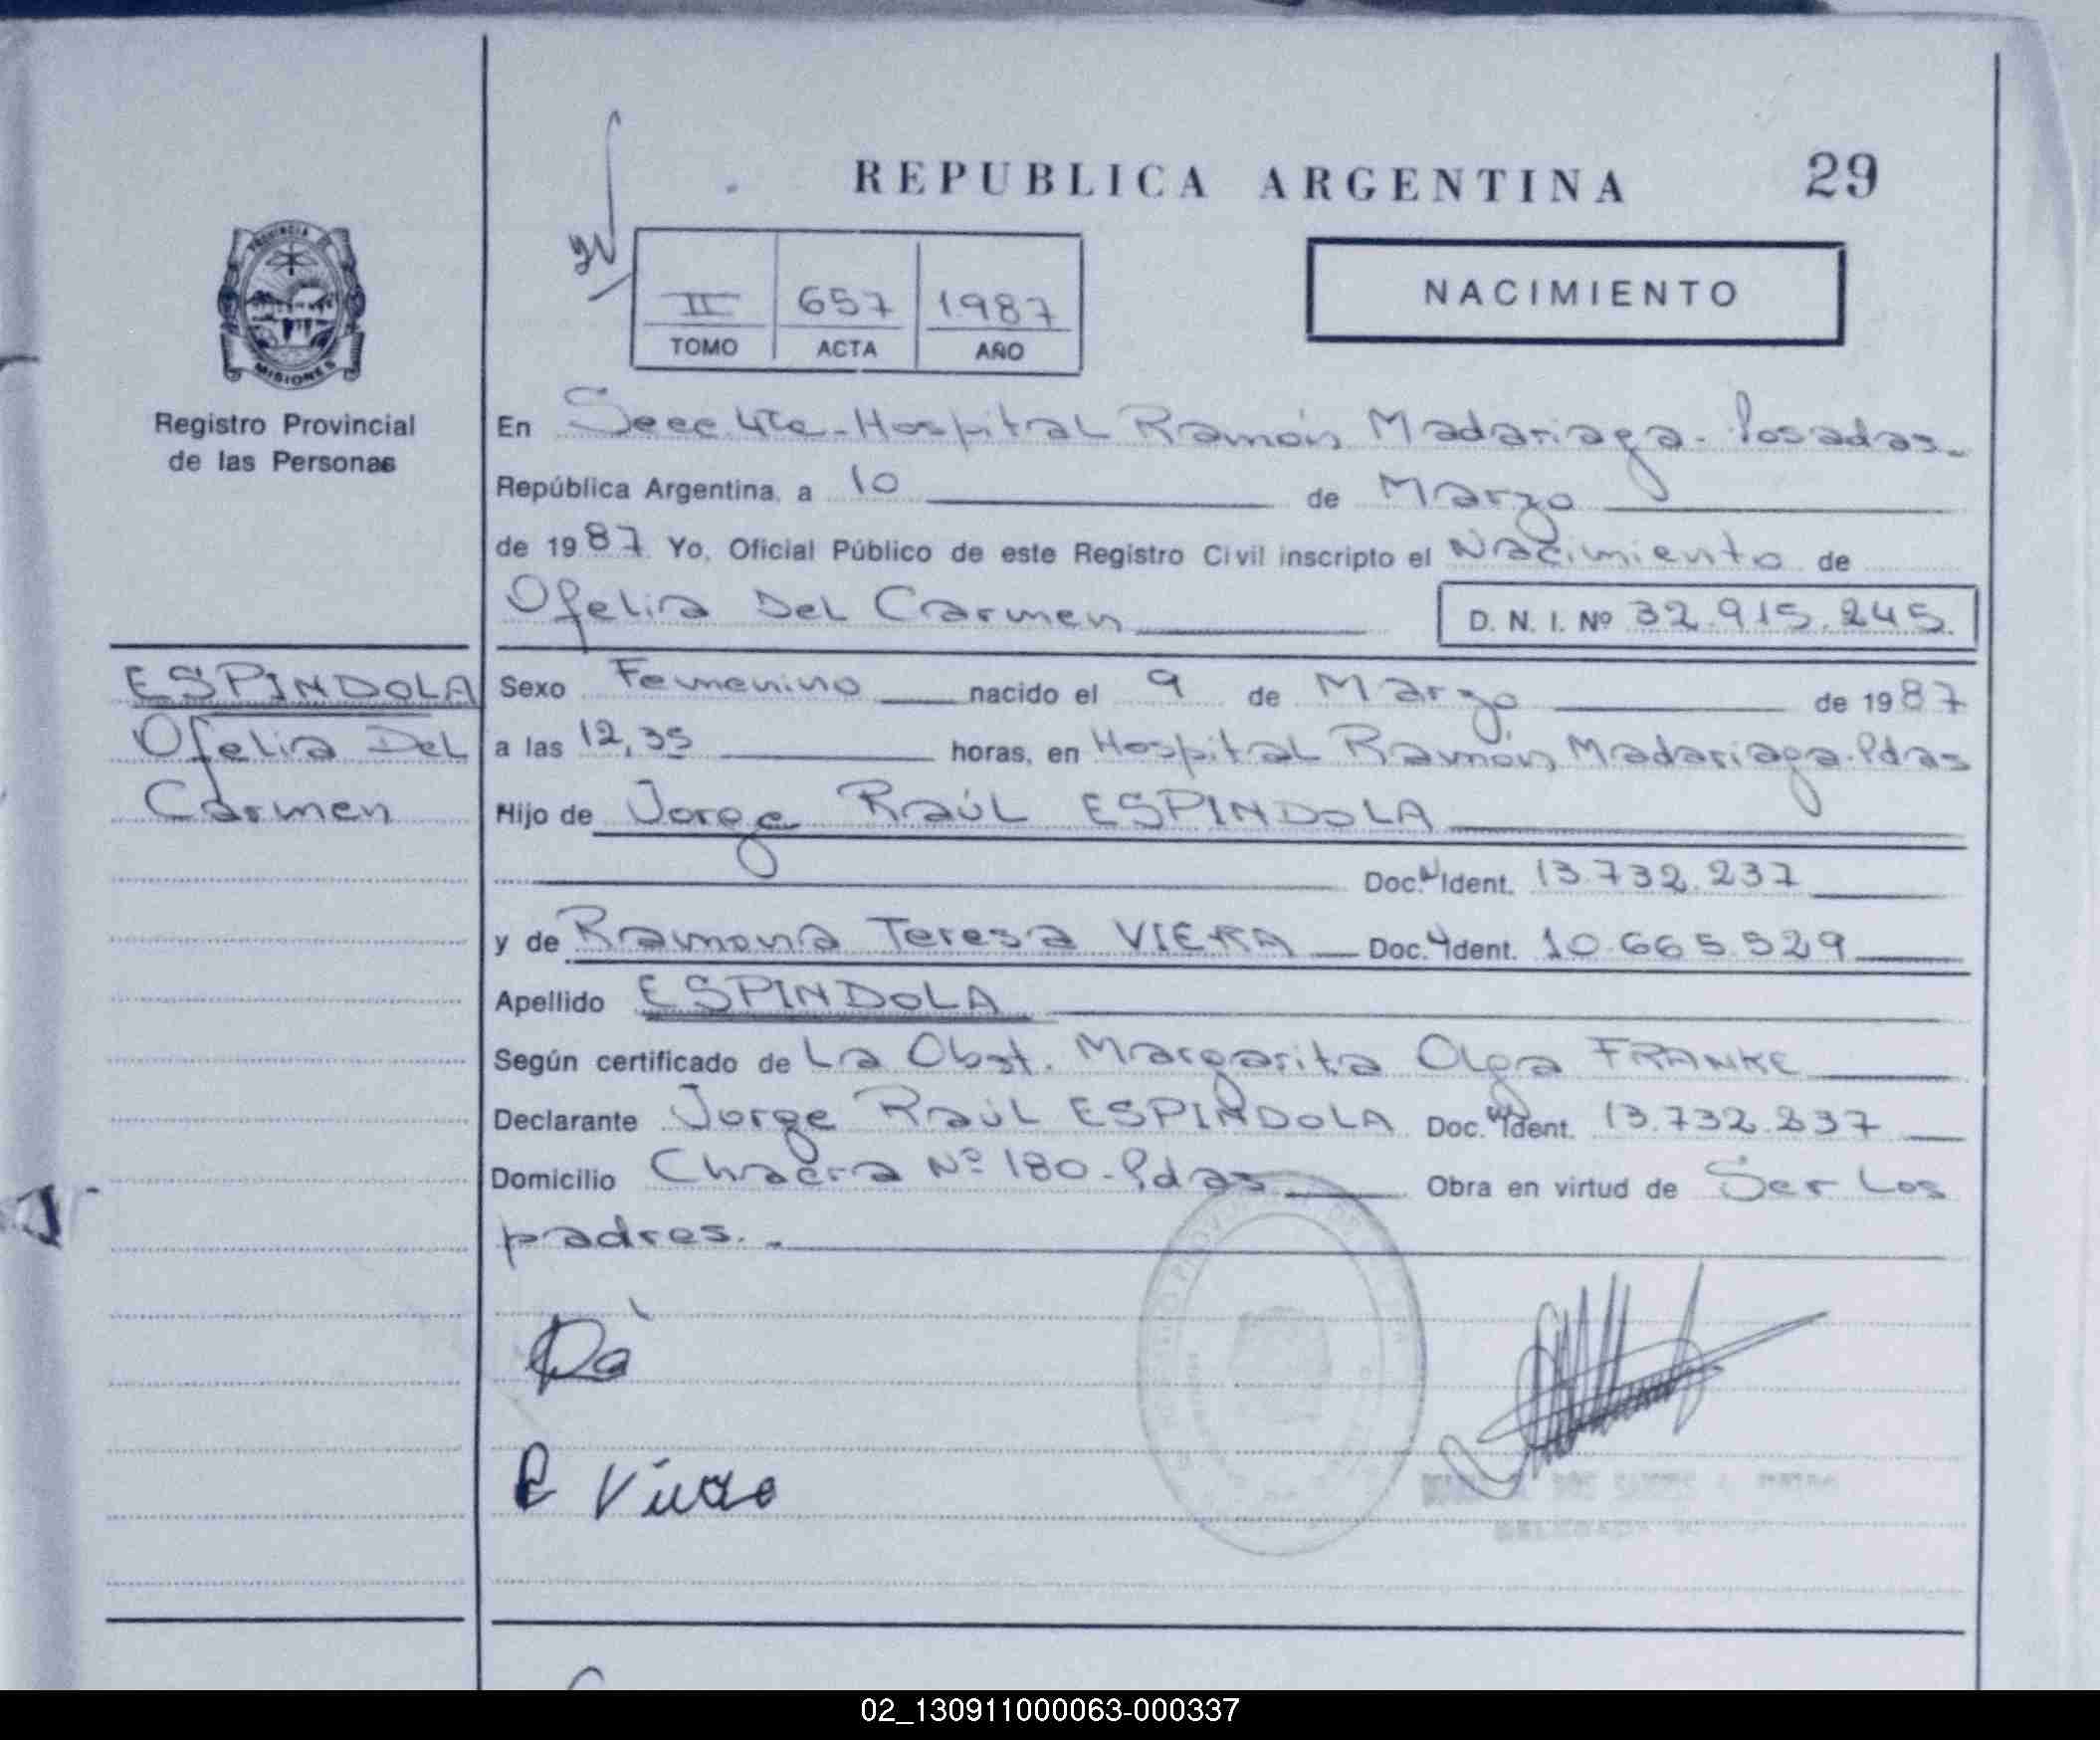 REPUBLICA ARGENTINA 29
PROVINCIA DE
MISIONES
Registro Provincial
de las Personas
II 657 1987
TOMO ACTA AÑO
NACIMIENTO
En Secc 4ta - Hospital Ramón Madariaga - Posadas.-
República Argentina, a 10 de Marzo
de 1987 Yo, Oficial Público de este Registro Civil inscripto el Nacimiento de
Ofelia Del Carmen D. N. I. Nº 32.915.245
ESPINDOLA
Ofelia Del
Carmen
Sexo Femenino nacido el 9 de Marzo de 1987
a las 12,35 horas, en Hospital Ramón Madariaga-Pdas
Hijo de Jorge Raúl ESPINDOLA
Doc. Ident. 13.732.237
y de Ramona Teresa VIERA Doc. Ident. 10.665.529
Apellido ESPINDOLA
Según certificado de La Obst. Margarita Olga FRANKE
Declarante Jorge Raúl ESPINDOLA Doc. Ident. 13.732.237
Domicilio Chacra Nº 180 - Pdas Obra en virtud de Ser Los
padres.-
02_130911000063-000337